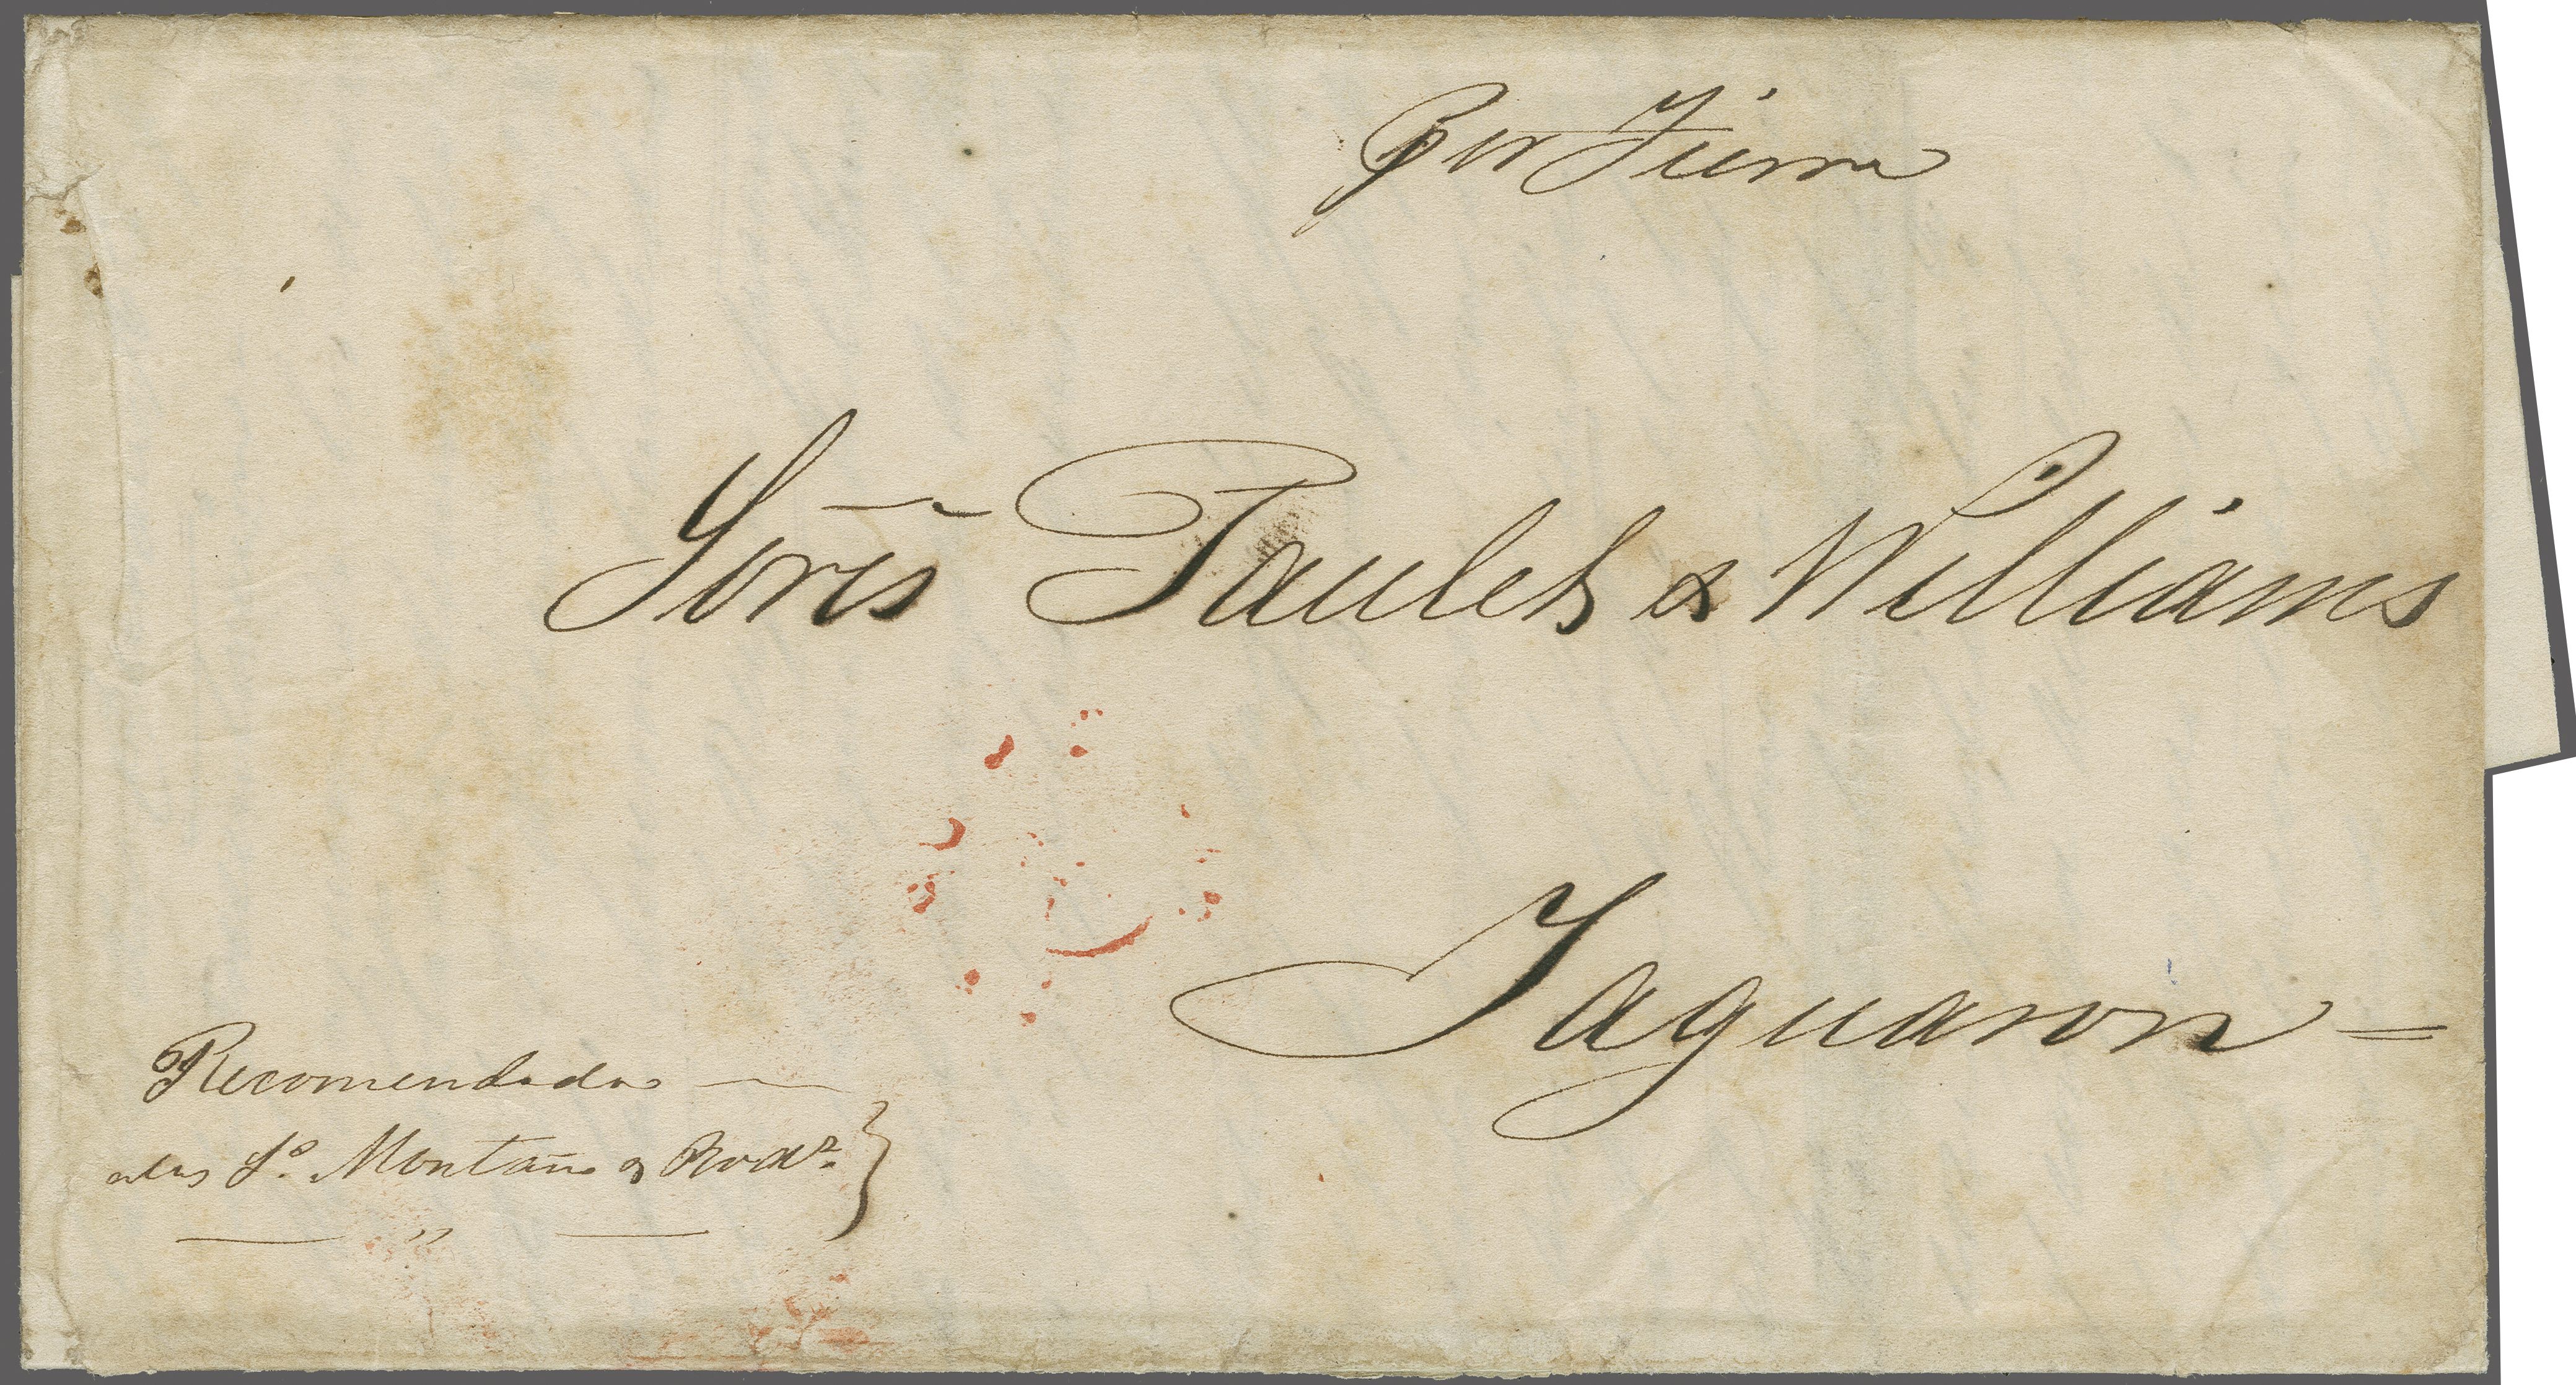 Por Tierra
Sores Paulet & Williams
Jaguaron =
Recomendada
a los Ss. Montaño & Rodz.